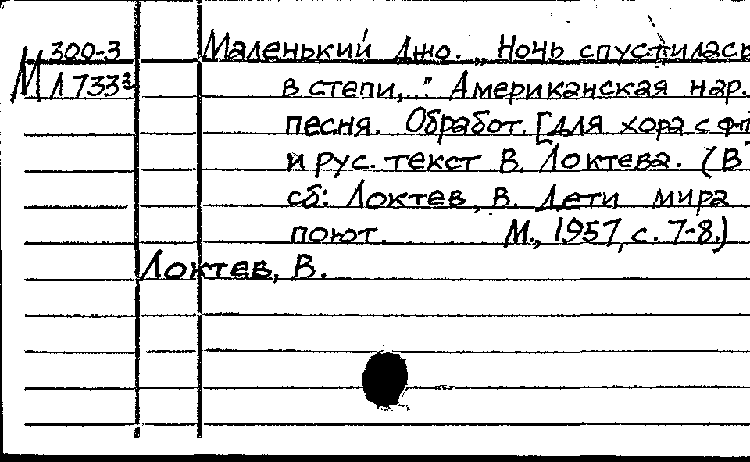 М 300-3 Маленький Джо. „Ночь спустилась
Л 733³ в степи,..." Американская нар.
песня. Обработ. [для хора с ф-п]
и рус. текст В. Локтева. (В
сб: Локтев, В. Дети мира
поют. М., 1957, с. 7-8.)
Локтев, В.